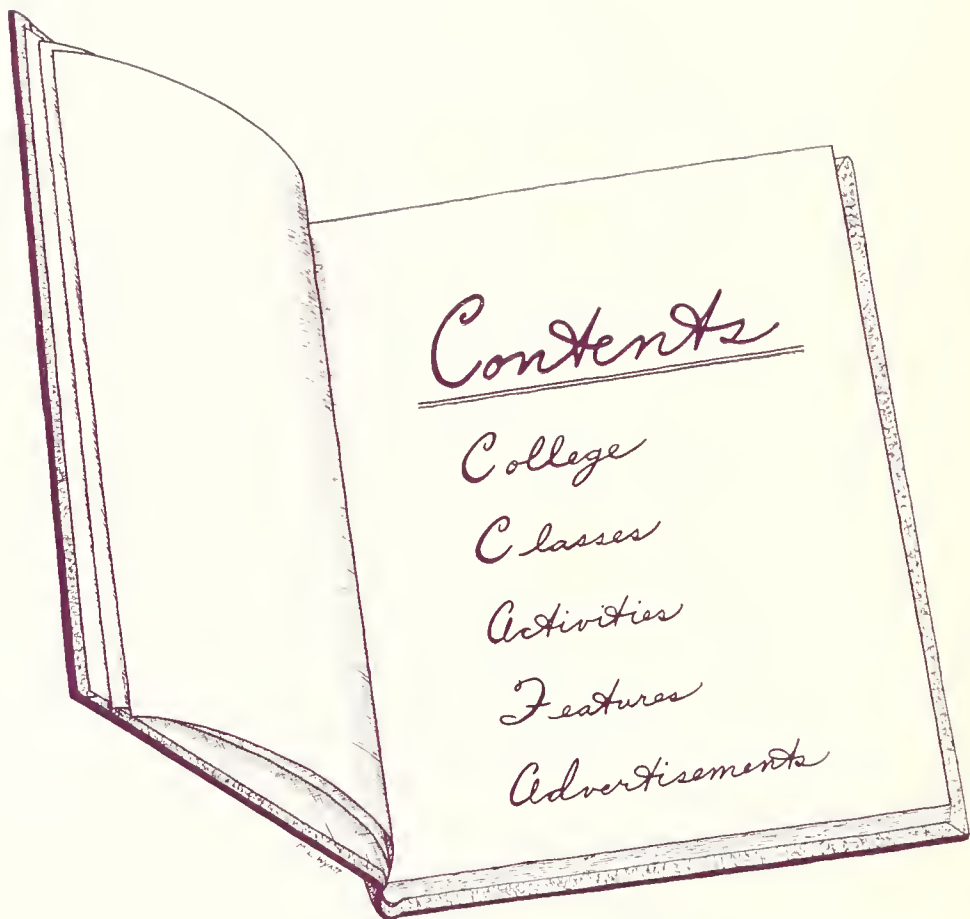 Contents
College
Classes
Activities
Features
Advertisements